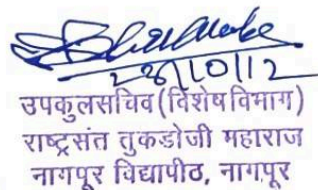 28/10/12
उपकुलसचिव (विशेष विभाग)
राष्ट्रसंत तुकडोजी महाराज
नागपूर विद्यापीठ, नागपूर